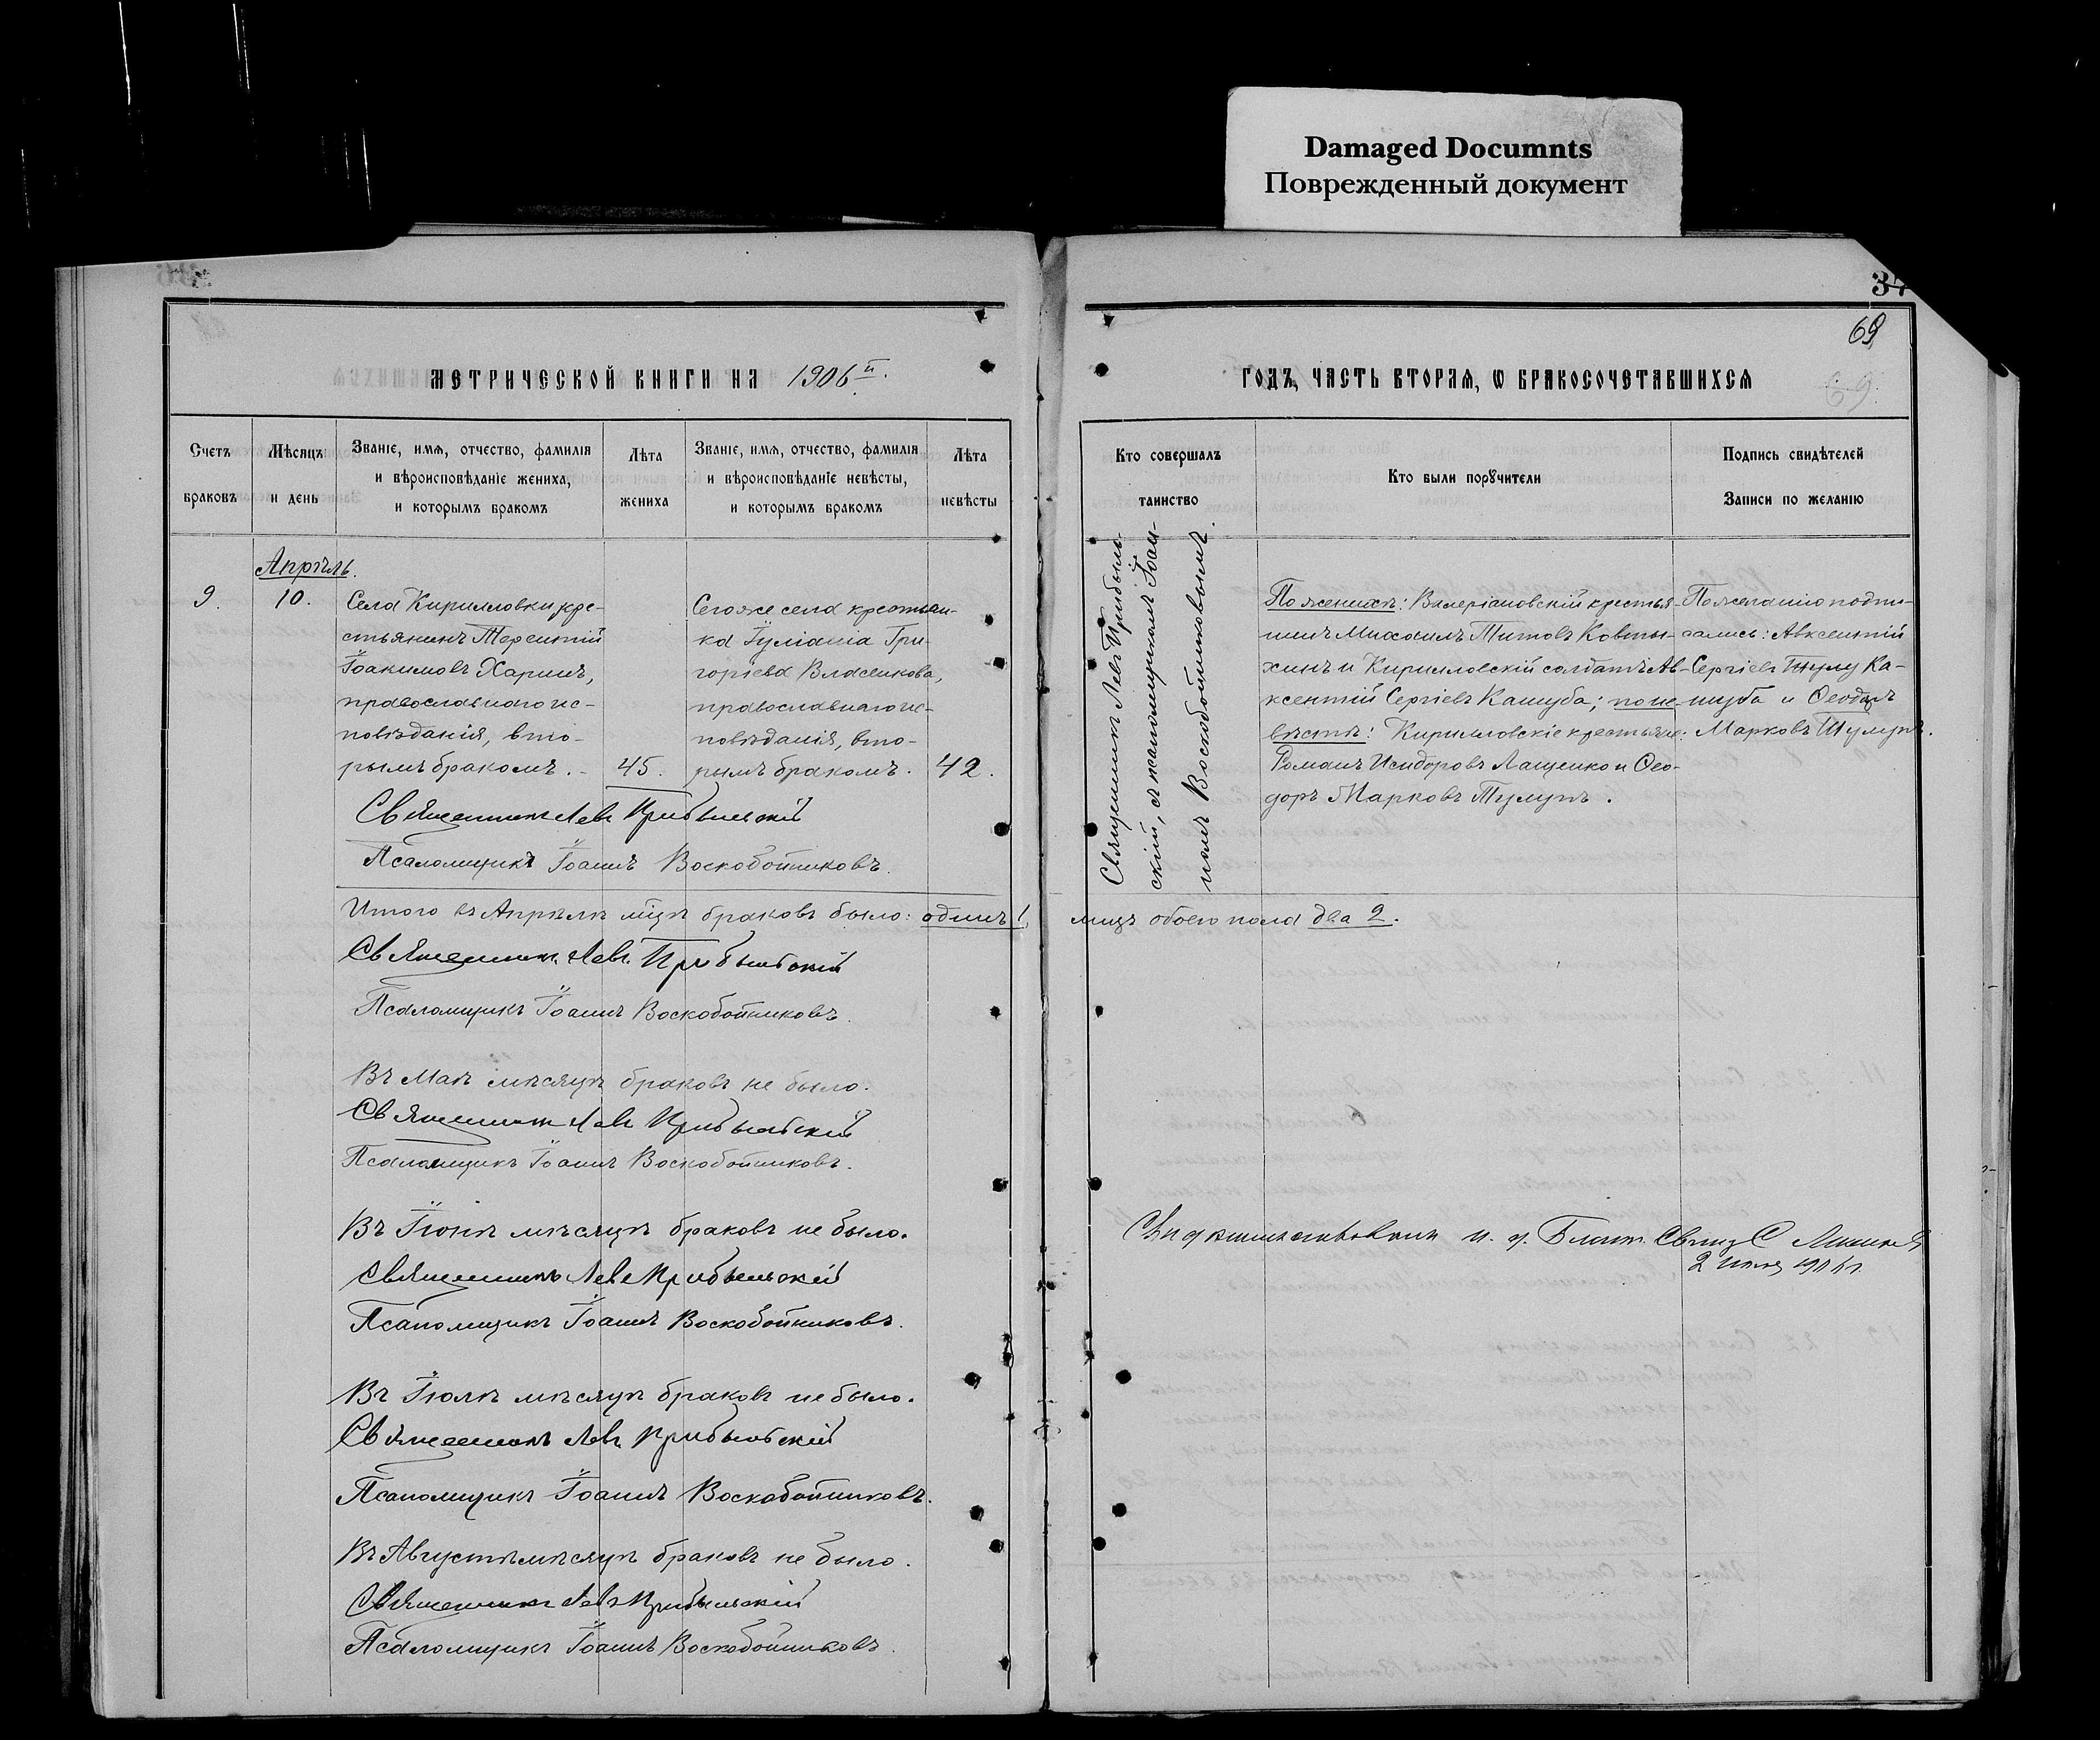 Damaged Documnts
Поврежденный документ
37
69
69.
МЕТРИЧЕСКОЙ КНИГИ НА 1906й.
ГОДЪ, ЧАСТЬ ВТОРАѦ, Ѡ БРАКОСОЧЕТАВШИХСѦ
Счетъ
браковъ
Мѣсяцъ
и день
Званіе, имѧ, отчество, фамиліѧ
и вѣроисповѣданіе жениха,
и которымъ бракомъ
Лѣта
жениха
Званіе, имѧ, отчество, фамиліѧ
и вѣроисповѣданіе невѣсты,
и которымъ бракомъ
Лѣта
невѣсты
Кто совершалъ
таинство
Кто были порꙋчители
Подпись свидѣтелей
Записи по желанію
Апрѣль.
9.
10.
Села Кирилловки кре-
стьянинъ Терентій
Іоакимовъ Харинъ,
православнаго ис-
повѣданія, вто-
рымъ бракомъ.
45.
Сегоже села крестьян-
ка Іуліанія Гри-
горіева Власенкова,
православнаго ис-
повѣданія, вто-
рымъ бракомъ.
42.
Священникъ Левъ Прибыль-
скій, съ псаломщикомъ Іоан-
номъ Воскобойниковымъ.
По женихѣ: Валеріановскій крестья-
нинъ Михаилъ Титовъ Ковты-
хинъ и Кирилловскій солдатъ Ав-
ксентій Сергіевъ Кашуба; по не-
вѣстѣ: Кирилловскіе крестьяне:
Романъ Исидоровъ Лащенко и Ѳео-
доръ Марковъ Тулупъ.
По желанію подпи-
сались: Авксентій
Сергіевъ Ка-
шуба и Ѳеодоръ
Марковъ Тулупъ.
Священникъ Левъ Прибыльскій
Псаломщикъ Іоаннъ Воскобойниковъ.
Итого въ Апрѣлѣ мцѣ браковъ было: одинъ 1, лицъ обоего пола два 2.
Священникъ Левъ Прибыльскій
Псаломщикъ Іоаннъ Воскобойниковъ.
Въ Маѣ мѣсяцѣ браковъ не было.
Священникъ Левъ Прибыльскій
Псаломщикъ Іоаннъ Воскобойниковъ.
Въ Іюнѣ мѣсяцѣ браковъ не было.
Священникъ Левъ Прибыльскій
Псаломщикъ Іоаннъ Воскобойниковъ.
Свидѣтельствовалъ и. д. Благ. Свящ. С
2 1906 г.
Въ Іюлѣ мѣсяцѣ браковъ не было.
Священникъ Левъ Прибыльскій
Псаломщикъ Іоаннъ Воскобойниковъ.
Въ Августѣ мѣсяцѣ браковъ не было.
Священникъ Левъ Прибыльскій
Псаломщикъ Іоаннъ Воскобойниковъ.